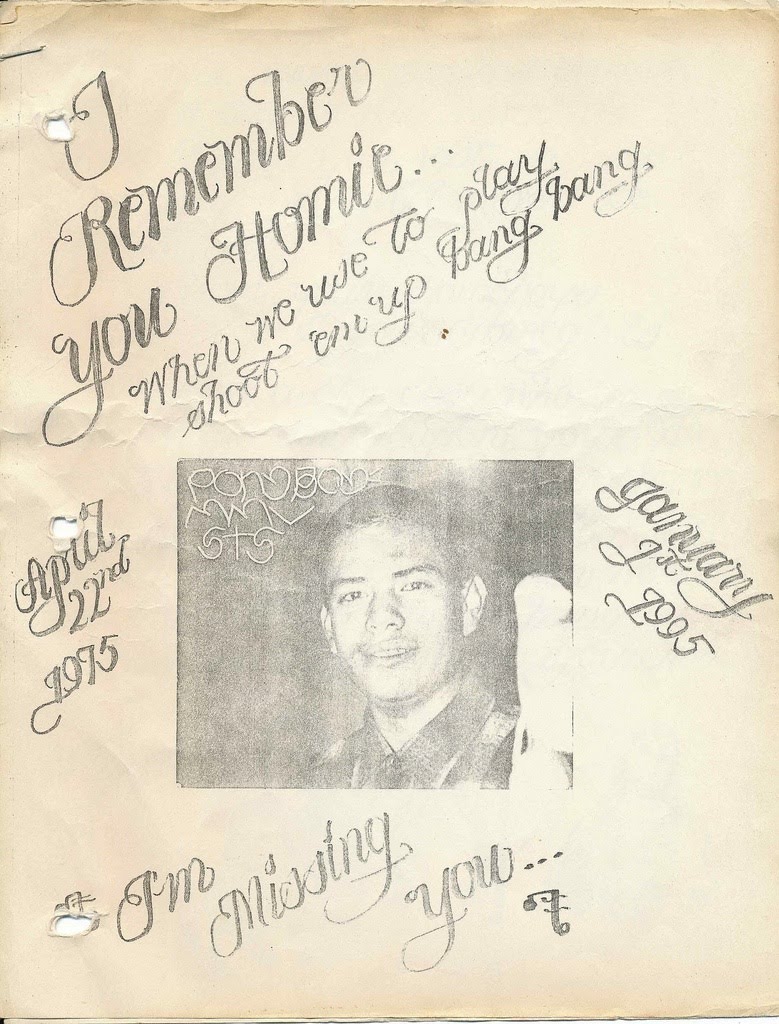 I
Remember
you Homie...
When we use to play
shoot 'em up bang bang
PONYBOY
MWN
STS
April
22nd
1975
January
1st
1995
I'm Missing you...